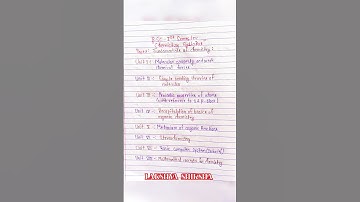 B.Sc - 1st Semester
Chemistry Syllabus
Paper: Fundamentals of chemistry I
Unit I: Molecular polarity and weak
chemical forces
Unit II: Simple bonding theories of
molecules
Unit III: Periodic properties of atoms
(with reference to s & p-block)
Unit IV: Recapitulation of basics of
organic chemistry
Unit V: Mechanism of organic Reactions
Unit VI: Stereochemistry
Unit VII: Basic computer system
Unit VIII: Mathematical concepts for chemistry
LAKSHYA SHIKSHA